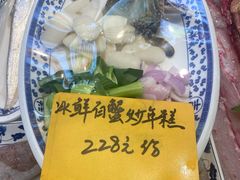 冰鲜白蟹炒年糕
228元/份